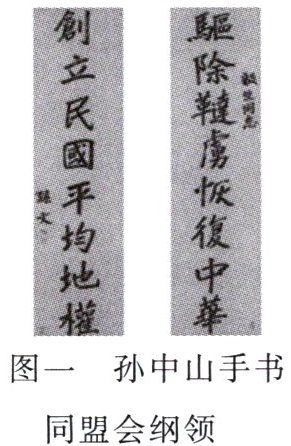 驅除韃虜恢復中華
毅生同志
創立民國平均地權
孫文
图一 孙中山手书
同盟会纲领